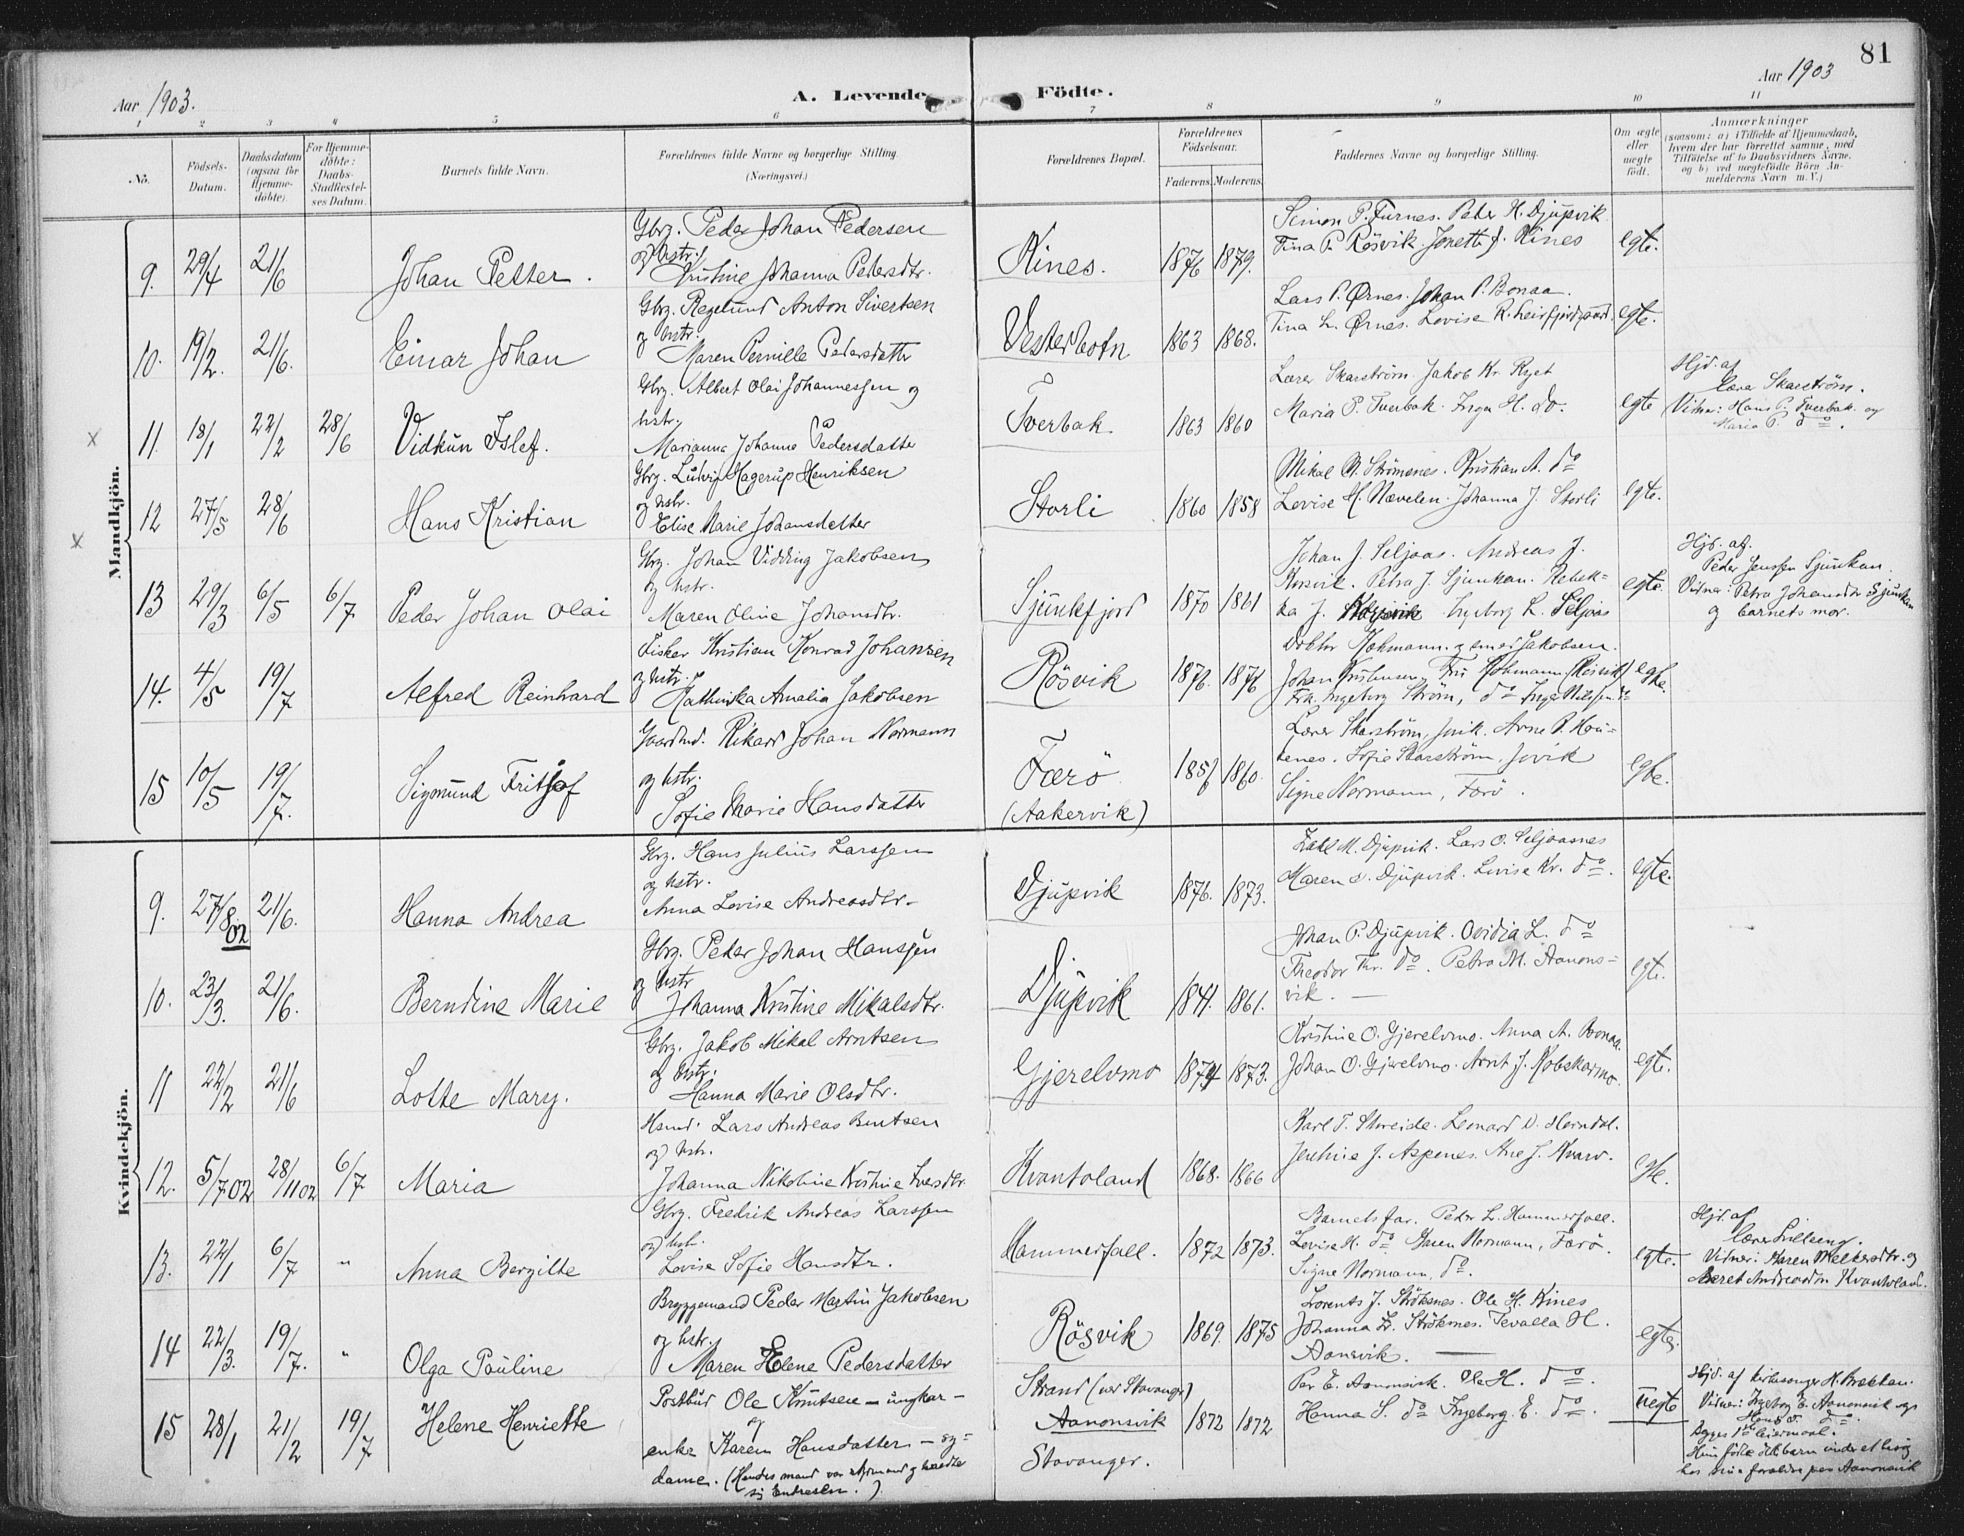 81
Aar 1903.
A. Levende Födte.
Aar 1903
1 2 3 4 5 6 7 8 9 10 11
No.
Födsels-Datum.
Daabsdatum (ogsaa for Hjemme-döbte).
For Hjemme-döbte: Daabs-Stadfæstel-ses Datum.
Barnets fulde Navn.
Forældrenes fulde Navne og borgerlige Stilling.
(Næringsvei.)
Forældrenes Bopæl.
Forældrenes Födselsaar.
Faderens. Moderens.
Faddernes Navne og borgerlige Stilling.
Om ægte eller uægte født.
Anmærkninger
(saasom: a) i Tilfælde af Hjemmedaab, hvem der har forrettet samme, med Tilföielse af to Daabsvidners Navne, og b) ved uægtefödte Börn Anmelderens Navn m. V.)
Mandkjön.
9. 29/4 21/6 Johan Petter.
Gbrg. Peder Johan Pedersen
og hstr.
Kristine Johanna Pedersdtr.
Kines. 1876 1879.
Simon P. Furnes. Peder H. Djupvik
Tina P. Rösvik. Jonette J. Kines
egte.
10. 19/2. 21/6. Einar Johan
Gbrg. Regelund Anton Sivertsen
og hstr.
Maren Pernille Pedersdatter
Vesterbotn 1863 1868.
Lars P. Ørnes. Johan P. Bonaa.
Tina L. Ørnes. Lovise R. Leirfjordgaard.
egte.
x 11. 18/1 22/2 28/6 Vidkun Islef.
Gbrg. Albert Olai Johannessen og
hstr.
Marianna Johanna Pedersdatter
Tverbak 1863 1860
Lærer Skarström. Jakob Kr. Ryet
Maria P. Tverbak. Inga H. do.
egte
Hjd. af
Lærer Skarström.
Vidner: Hans P. Tverbak og
Maria P. do.
12 27/5 28/6 Hans Kristian
Gbrg. Ludvig Hagerup Henriksen
og hstr.
Elise Marie Johansdatter
Storli 1860 1858
Mikal N. Strömenes. Kristian A. do
Lovise H. Nævelen. Johanna J. Storli
egte.
x 13 29/3 6/5 6/7 Peder Johan Olai
Gbrg. Johan Vidding Jakobsen
og hstr.
Maren Oline Johansdtr.
Sjunkfjord 1870 1861
Johan J. Seljaas. Andreas J.
Korsvik. Petra J. Sjunkan. Rebek-
ka J. Ingeborg L. Seljaas
egte.
Hjd. af.
Peder Jenssen Sjunkan.
Vidner: Petra Johansdtr Sjunkan
og barnets mor.
14. 4/5 19/7 Alfred Reinhard
Fisker Kristian Konrad Johansen
og hstr.
Hathinka Amalia Jakobsen
Rösvik 1876. 1876
Doktor Hohmann.
Frk. Ingeborg Ström, do Inga Nilssen do
egte.
15 10/5 19/7. Sigmund Fritjof
Gaardmd. Rikard Johan Normann
og hstr.
Sofie Marie Hansdatter
Færö 1857 1860.
(Aakervik)
Lærer Skarström, Jovik. Arne P. Hou-
tenes. Sofie Skarström, Jovik
Signe Normann, Færö.
egte.
Kvindekjön.
9. 27/8 02 21/6. Hanna Andrea
Gbrg. Hans Julius Larssen
og hstr.
Anna Lovise Andreasdtr.
Djupvik 1876. 1873.
M. Djupvik. Lars O. Seljaasnes
Maren D. Djupvik. Lovise Kr. do.
egte.
10. 23/3. 21/6. Berntine Marie
Gbrg. Peder Johan Hanssen
og hstr
Johanna Kristine Mikalsdtr.
Djupvik 1841. 1861.
Johan P. Djupvik. Ovidia L. do
Theodor Thr. do. Petra M. Aanons-
vik. —
egte.
11 22/2 21/6 Lotte Mary.
Gbrg. Jakob Mikal Arntsen
og hstr.
Hanna Marie Olsdtr.
Gjerelvmo 1874 1873.
Kristine O. Gjerelvmo. Anna A. Bonaa.
Johan O. Gjerelvmo. Arnt J. Kobskarmo.
egte.
12. 5/7 02 28/11 02 6/7 Maria
Hsmd. Lars Andreas Bentsen
og hstr.
Johanna Nikoline Kristine Larsdtr.
Kvantoland 1868. 1866
Karl T. Storeide. Leonard D. Horndal.
Jentine J. Aspenes. Ane J. Kvarv.
egte.
13. 22/1 6/7 " Anna Bergitte
Gbrg. Fredrik Andreas Larssen
og hstr.
Lovise Sofie Hansdtr.
Hammerfall. 1872 1873.
Barnets far. Peder L. Hammerfall.
Lovise H. do Maren Normann, Færö.
Signe Normann, do.
egte.
Hjd. af
Lærer Lilleeng.
Vidner: Maren Meltersdtr. og
Beret Andreasdtr Kvantoland.
14 22/3. 19/7. " Olga Pauline
Bryggemand Peder Martin Jakobsen
og hstr.
Maren Elene Pedersdatter
Rösvik 1869. 1875
Lorents J. Ströksnes. Ole H. Kines
Johanna Fr. Ströksnes. Tevalla H.
Aansvik. —
egte.
15 28/1 21/2 19/7 Helene Henriette
Postbud Ole Knutsen — ungkar —
og
enke Karen Hansdatter — sy-
dame. (Hendes mand var styrmand og hædte
sig Endresen.)
Strand (ved Stavanger)
Aanonsvik 1872 1872
Stavanger.
Per E. Aanonsvik. Ole H. do.
Hanna S. do Ingeborg E. do.
uegte
Hjd. af kirkesanger H. Brækkan.
Vidner: Ingeborg E. Aanonsvik og
Hans do.
Begges 1ste leiermaal.
Hun fødte dette barn under et besög
hos sine forældre paa Aanonsvik